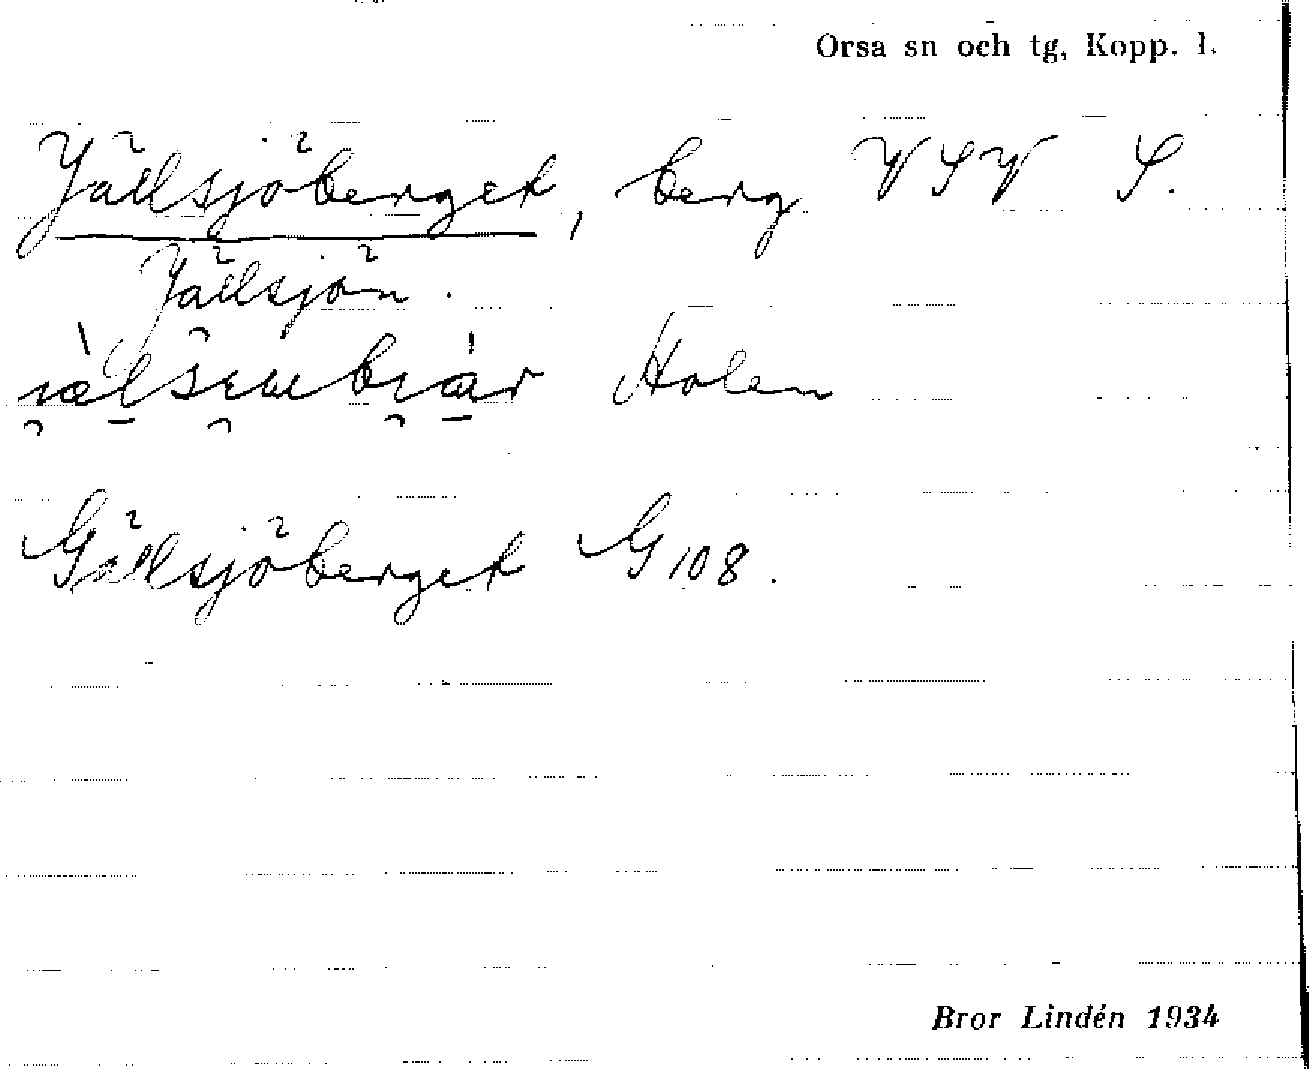 Orsa sn och tg, Kopp. l.
Jällsjöberget, berg VSV S.
Jällsjön.
Holen
Gällsjöberget G 108.
Bror Lindén 1934